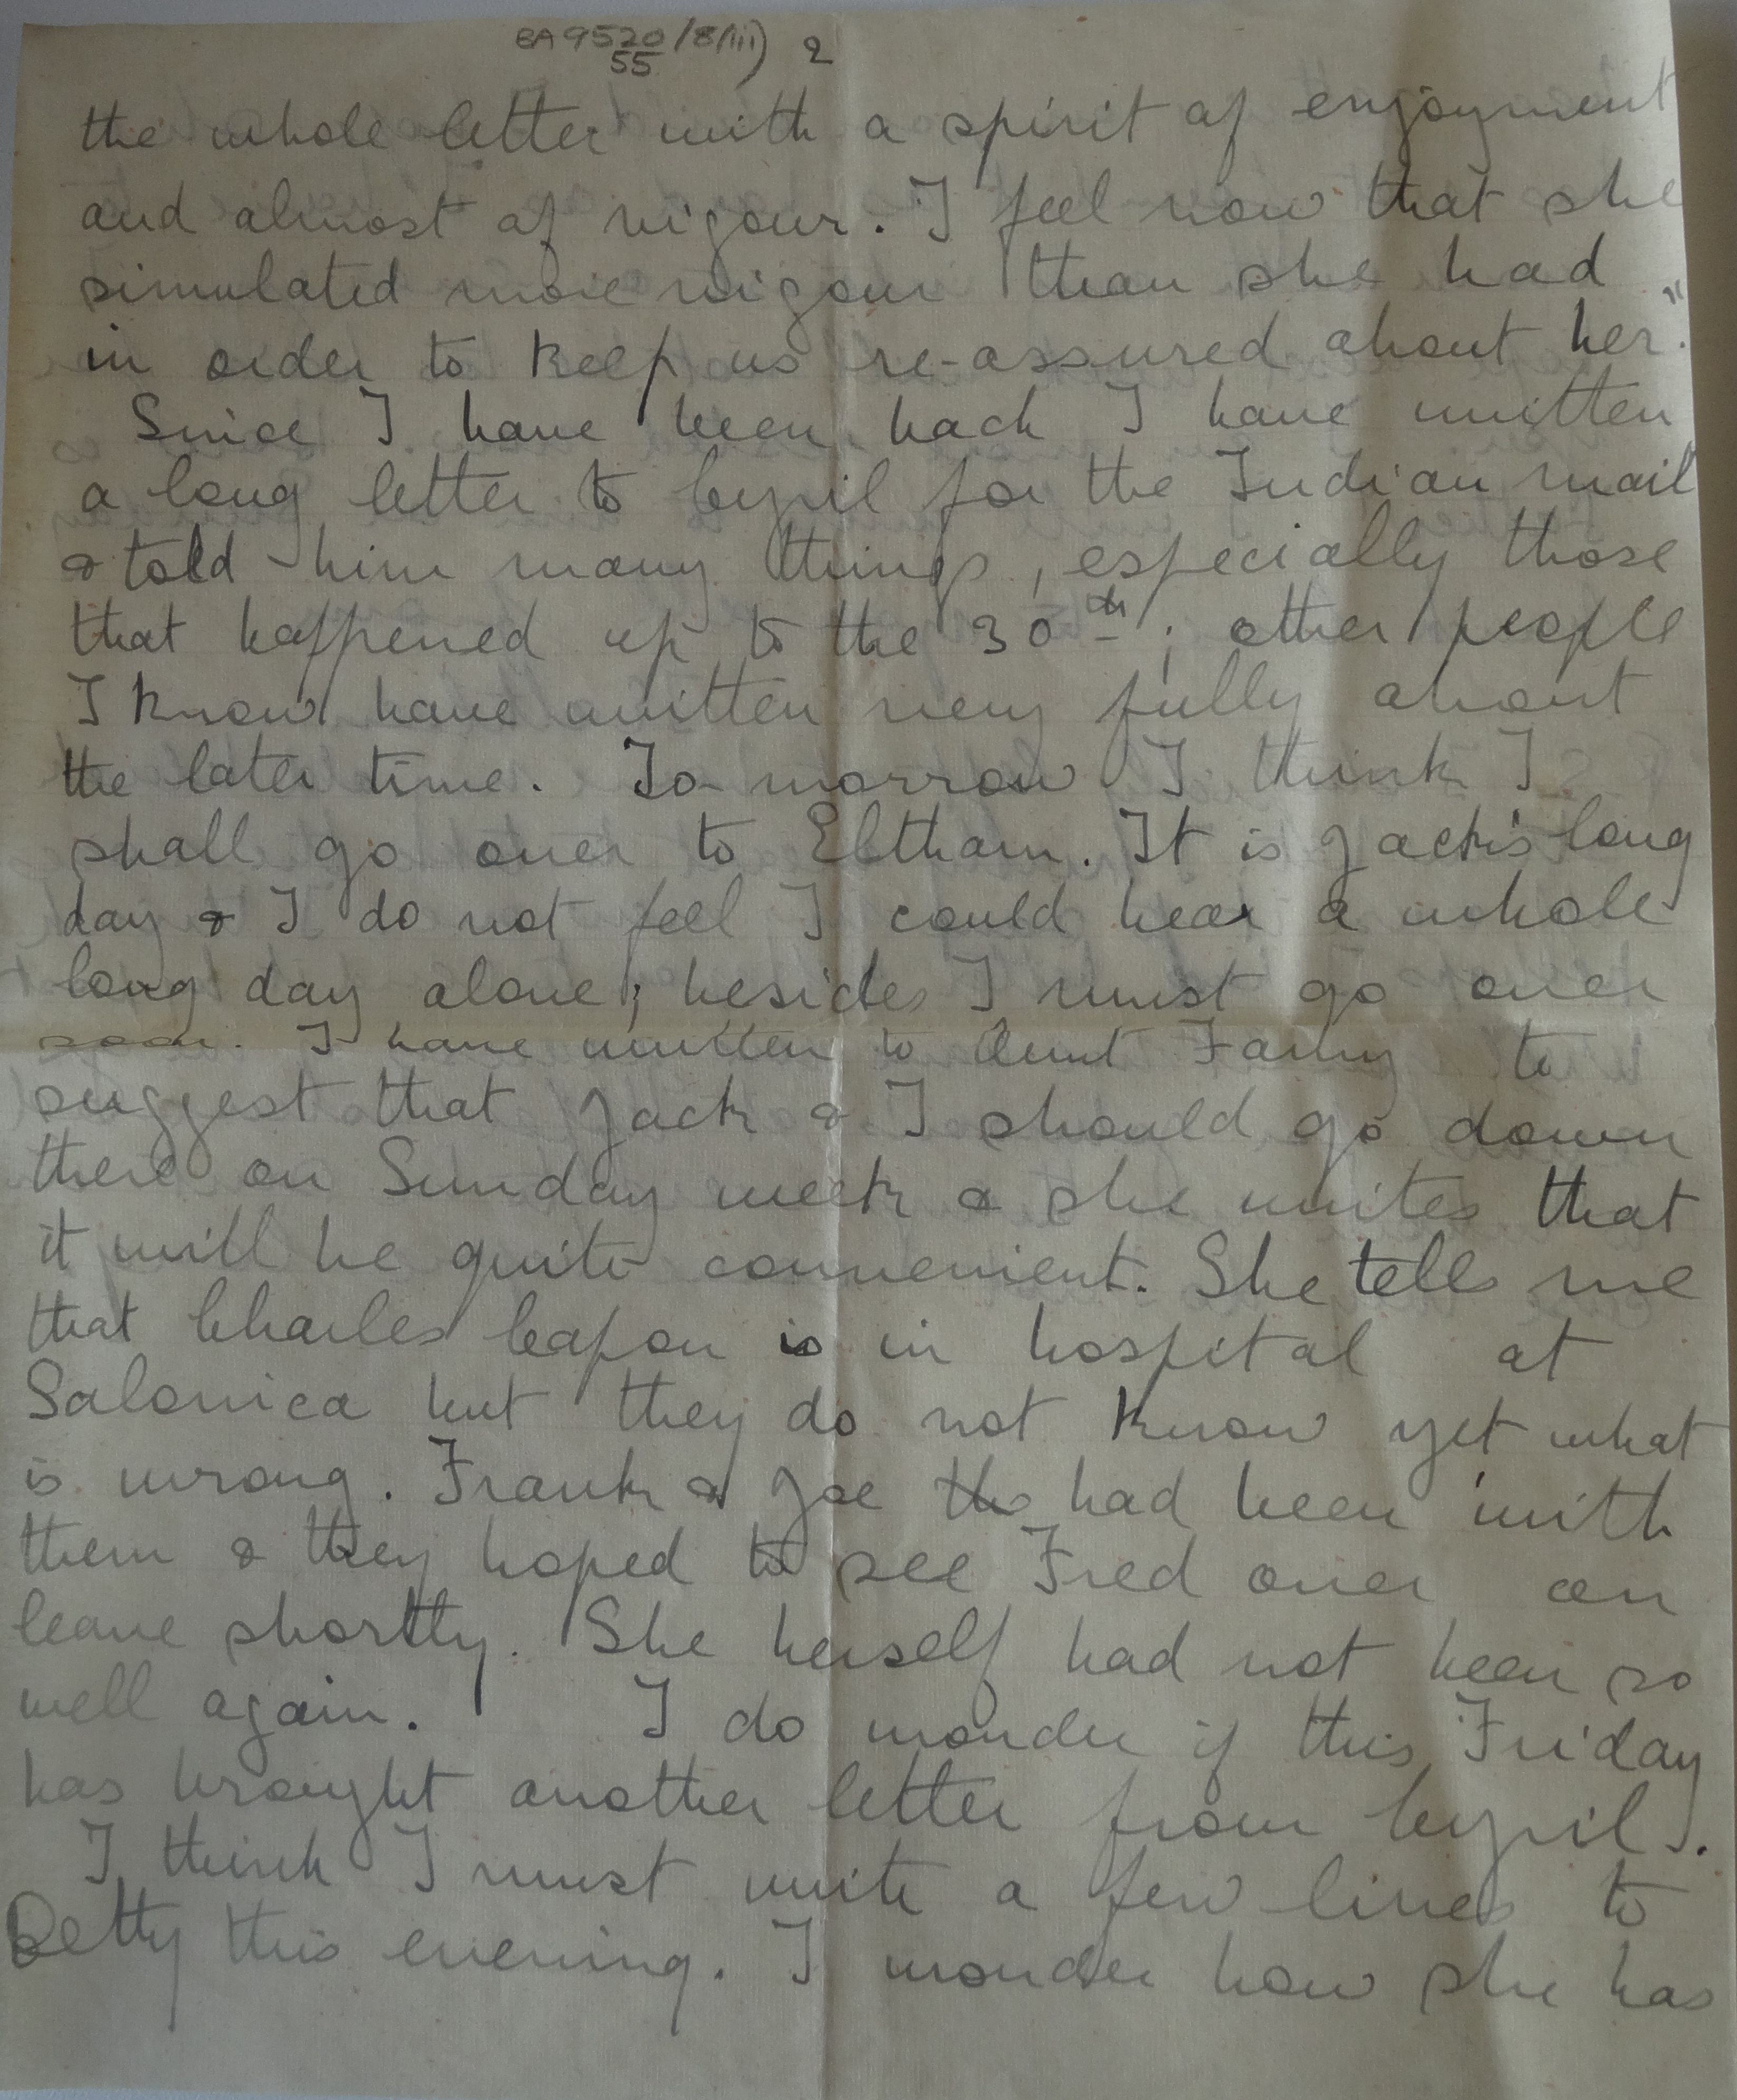 BA 9520/8(iii) 2
55
the whole letter with a spirit of enjoyment
and almost of vigour. I feel now that she
simulated more vigour than she had
in order to keep us re-assured about her."
Since I have been back I have written
a long letter to Cyril for the Indian mail
& told him many things, especially those
that happened up to the 30th; other people
I know have written very fully about
the later time. To-morrow I think I
shall go over to Eltham. It is Jack's long
day & I do not feel I could bear a whole
long day alone; besides I must go over
soon. I have written to Aunt Fanny to
suggest that Jack & I should go down
there on Sunday week & she writes that
it will be quite convenient. She tells me
that Charles Capon is in hospital at
Salonica but they do not know yet what
is wrong. Frank & Joe the had been with
them & they hoped to see Fred over on
leave shortly. She herself had not been so
well again. I do wonder if this Friday
has brought another letter from Cyril.
I think I must write a few lines to
Betty this evening. I wonder how she has